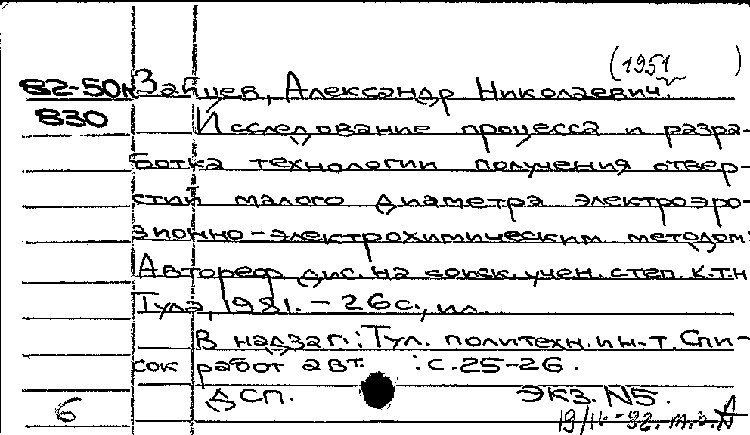 (1951)
82-50к Зайцев, Александр Николаевич.
830 Исследование процесса и разра-
ботка технологии получения отвер-
стий малого диаметра электроэро-
зионно-электрохимическим методом:
Автореф. дис. на соиск. учен. степ. к.т.н
Тула, 1981. - 26 с., ил.
В надзаг.: Тул. политехн. ин-т. Спи-
сок работ авт. : с. 25-26.
ДСП. ЭКЗ. N5.
6